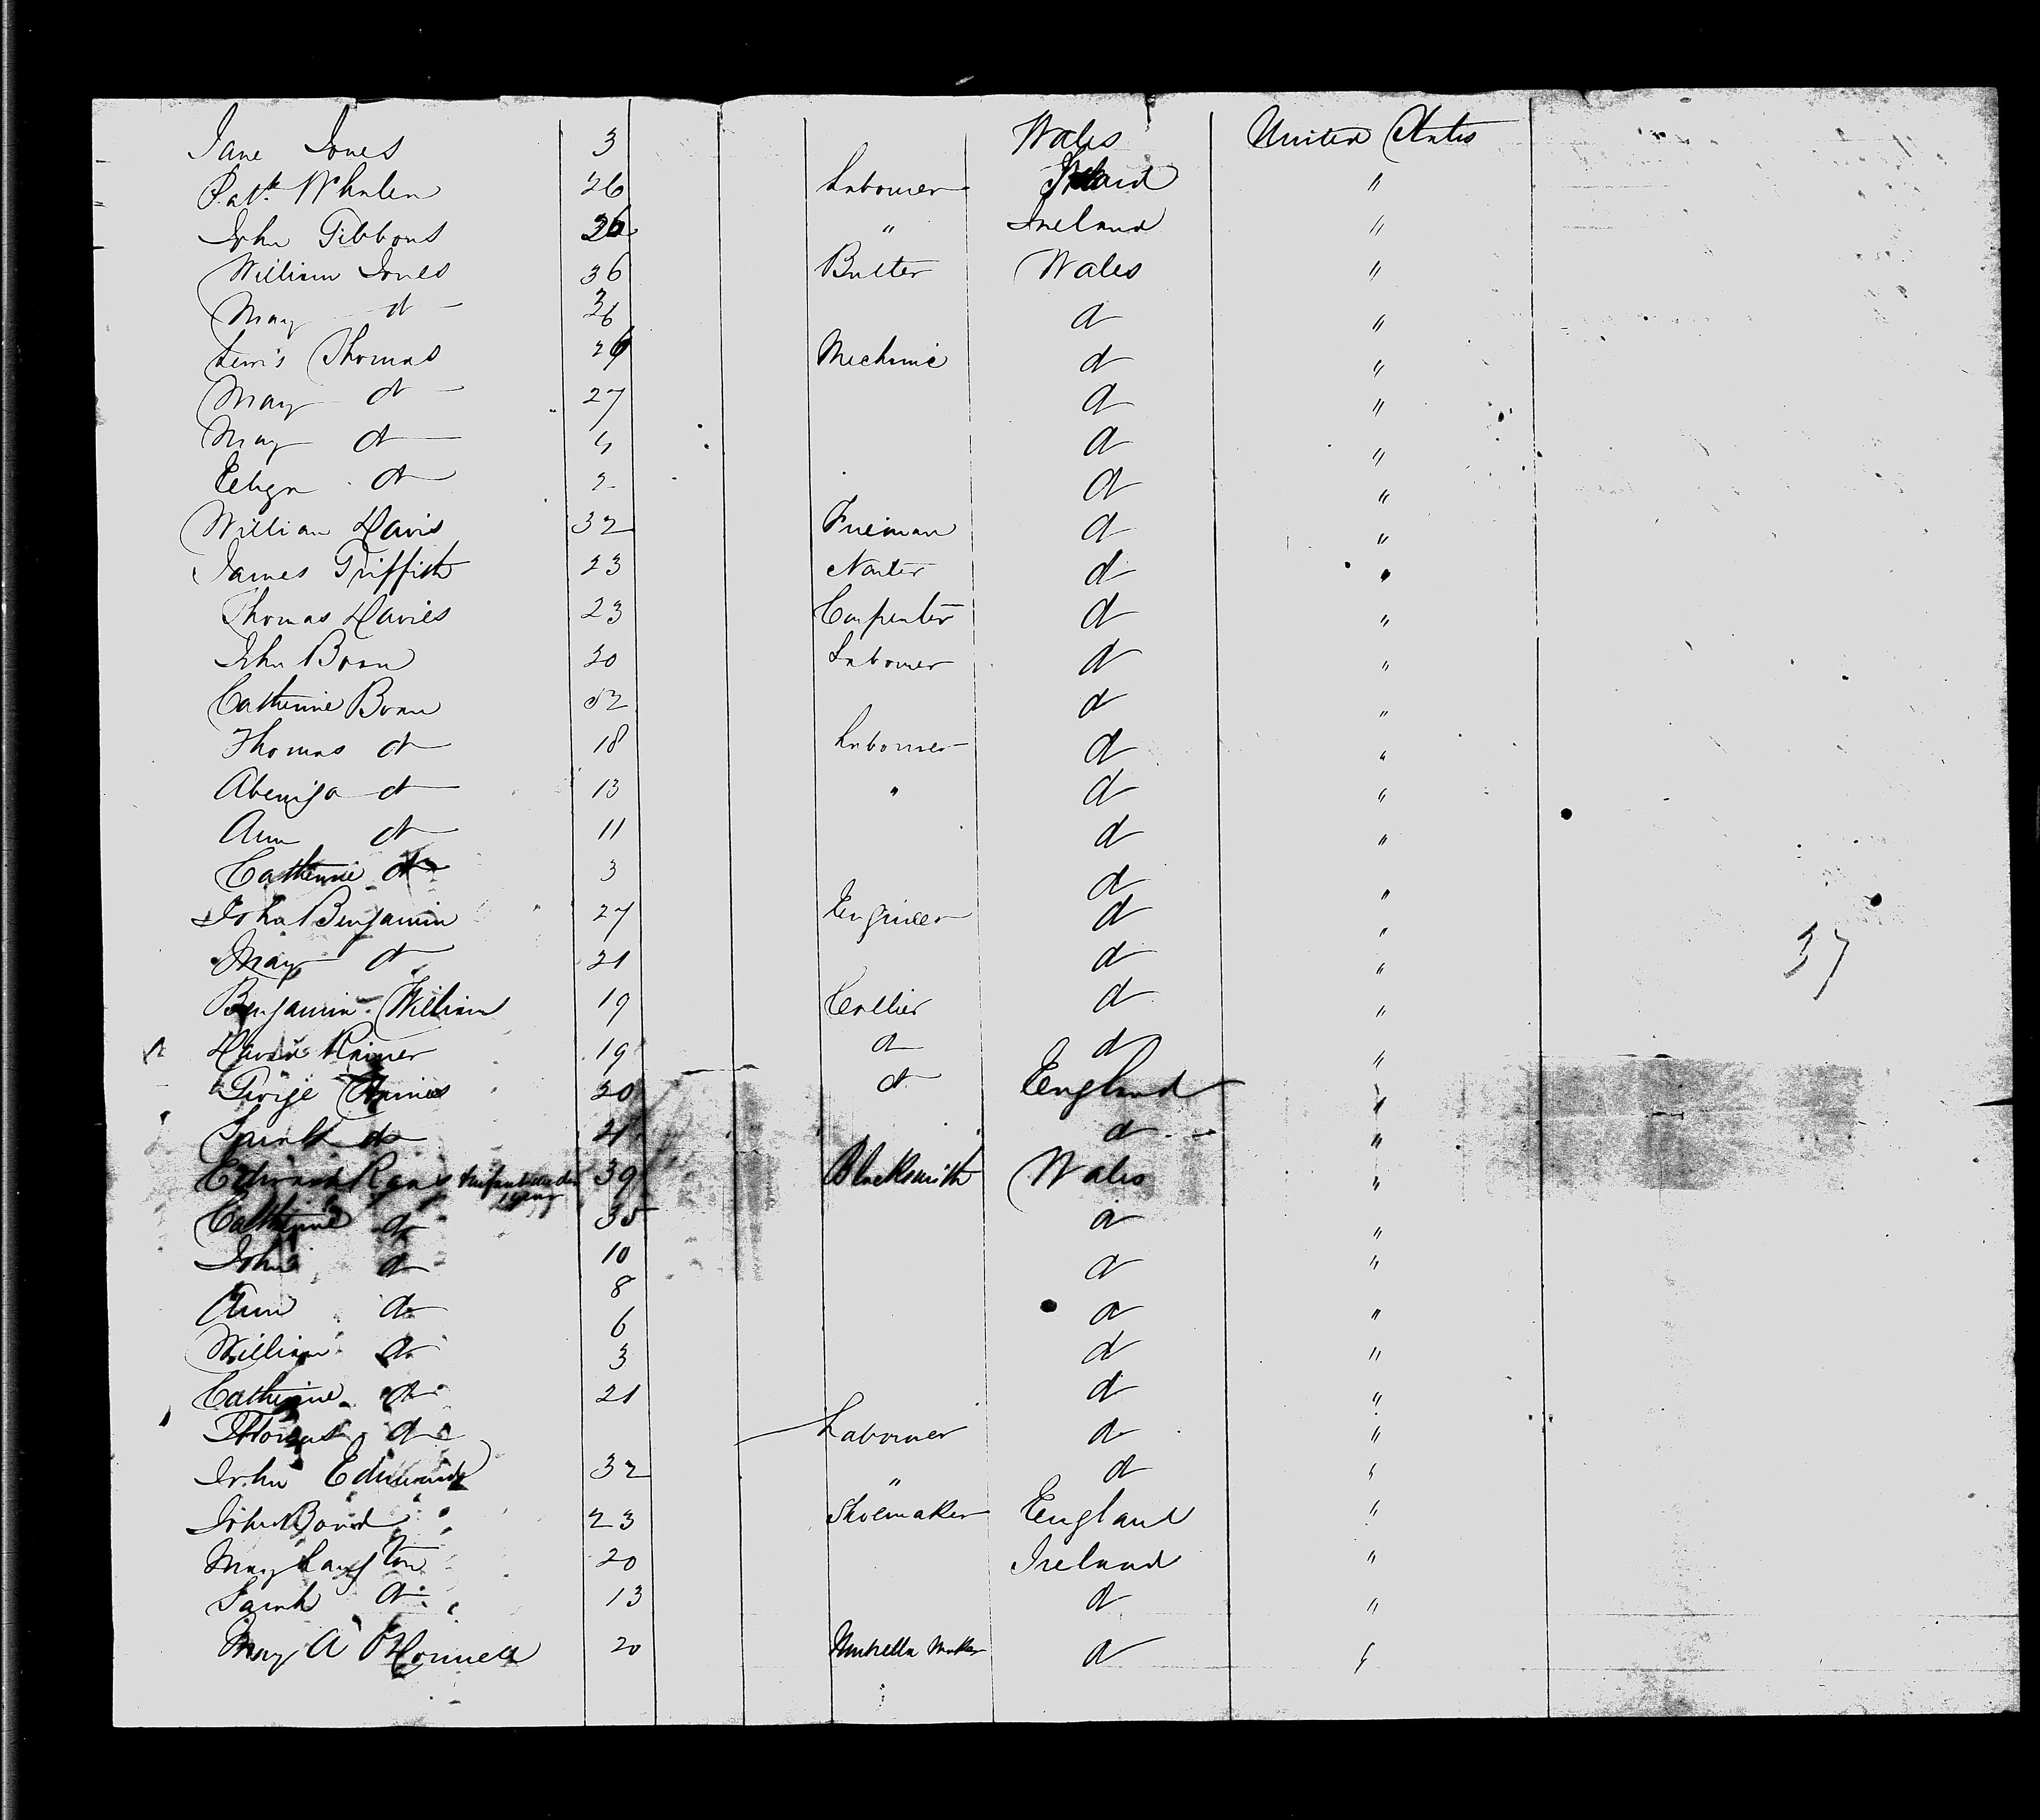 Jane Jones 3 Wales United States
Patk Whalen 26 Labourer Ireland "
John Gibbons 26 " Ireland "
William Jones 36 Wales "
Mary do 36 do "
Lewis Thomas 26 Mechanic do "
Mary do 27 do "
Mary do 4 do "
do 2 do "
William Davis 32 Fireman do "
James Griffith 23 do "
Thomas Davies 23 Carpenter do "
John Boan Labourer do "
Catherine Boan 52 do "
Thomas do 18 Labourer do "
do 13 " do "
Ann do 11 do "
Catherine do 3 do "
John Benjamin 27 Engineer do "
Mary do 21 do "
37
Benjamin William 19 Collier do "
19 do do "
George 20 do England "
Sarah do 21 do "
Edward Infant under 1 year 39 Blacksmith Wales "
Catherine do 35 do "
John do 10 do "
Ann do 8 do "
William do 6 do "
Catherine do 3 do "
Thomas do 21 Labourer do "
John Edmunds 32 " do "
John Bond 23 Shoemaker England "
Mary Langton 20 Ireland "
Sarah do 13 do "
Mary A O'Connell 20 Umbrella Maker do "